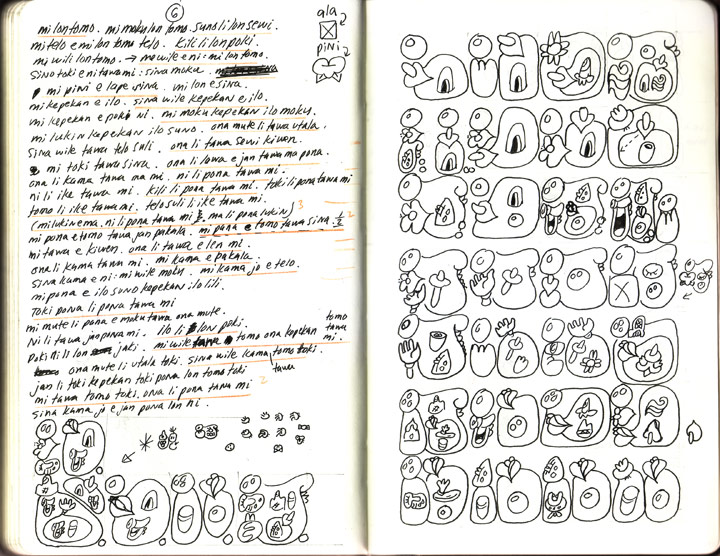 6
mi lon tomo. mi moku lon tomo. suno li lon sewi.
mi telo e mi lon tomo telo. kili li lon poki.
mi wile lon tomo. → mo wile e ni: mi lon tomo.
sina toki e ni tawa mi: sina moku.
mi pini e lape sina. mi lon e sina.
mi kepeken e ilo. sina wile kepeken e ilo.
mi kepeken e poki ni. mi moku kepeken ilo moku.
mi lukin kepekan ilo suno. ona mute li tawa utala.
sina wile tawa telo suli. ona li tawa sewi kiwen.
mi toki tawa sina. ona li lawa e jan tawa ma pona.
ona li kama tawa ma mi. ni li pona tawa mi.
ni li ike tawa mi. kili li pona tawa mi. toki li pona tawa mi
tomo li ike tawa mi. telo suli li ike tawa mi.
(mi lukin e ma. ni li pona tawa mi ma li pona lukin) 3
mi pona e tomo tawa jan pakala. mi pana e tomo tawa sina. 2
mi tawa e kiwen. ona li tawa e len mi.
ona li kama tawa mi. mi kama e pakala.
sina kama e ni: mi wile moku. mi kama jo e telo.
mi pona e ilo suno kepekan ilo lili.
toki pona li pona tawa mi
mi mute li pana e moku tawa ona mute.
ni li tawa jan pi ma mi. ilo li lon poki.
poki ni li lon jaki. mi wile tomo ona kepekan
tomo tawa mi.
ona mute li utala toki. sina wile kama tomo toki.
tawa
jan li toki kepekan toki pona lon tomo toki
mi tawa tomo toki. ona li pona tawa mi 2
sina kama jo e jan pona lon ni.
ala 2
pini 2